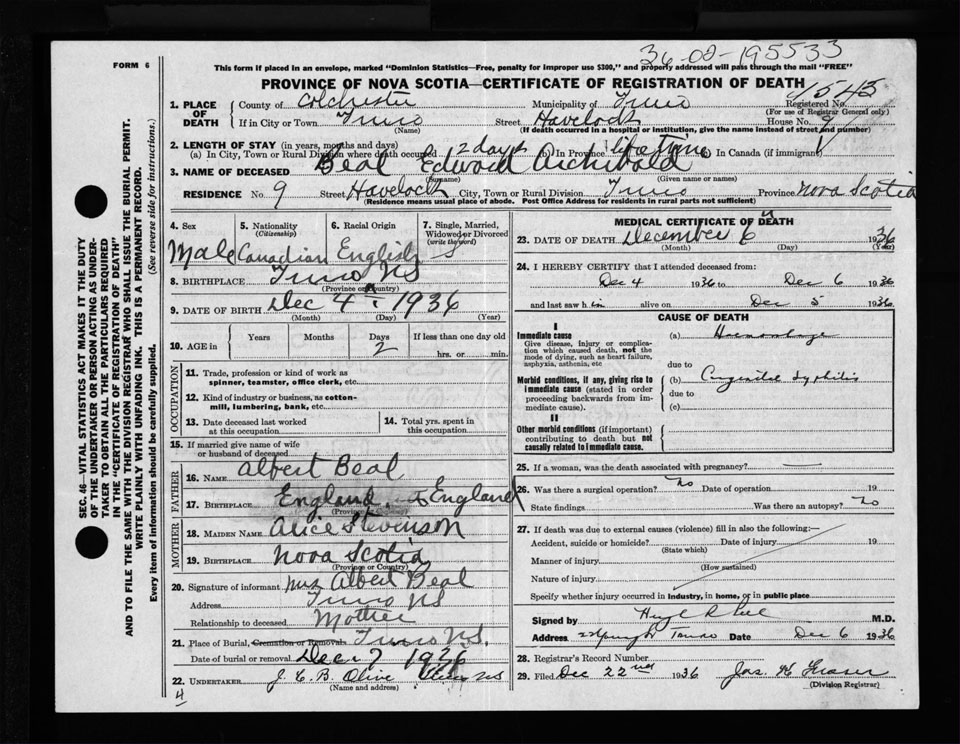 36-02-195533
FORM 6
This form if placed in an envelope, marked "Dominion Statistics—Free, penalty for improper use $300," and properly addressed will pass through the mail "FREE"
PROVINCE OF NOVA SCOTIA—CERTIFICATE OF REGISTRATION OF DEATH
SEC. 46—VITAL STATISTICS ACT MAKES IT THE DUTY
OF THE UNDERTAKER OR PERSON ACTING AS UNDER-
TAKER TO OBTAIN ALL THE PARTICULARS REQUIRED
IN THE "CERTIFICATE OF REGISTRATION OF DEATH"
AND TO FILE THE SAME WITH THE DIVISION REGISTRAR WHO SHALL ISSUE THE BURIAL PERMIT.
WRITE PLAINLY WITH UNFADING INK. THIS IS A PERMANENT RECORD.
Every item of information should be carefully supplied. (See reverse side for instructions.)
1. PLACE OF DEATH County of Colchester Municipality of Truro Registered No. 1545
(For use of Registrar General only)
If in City or Town Truro Street Havelock House No. 9
(Name) (If death occurred in a hospital or institution, give the name instead of street and number)
2. LENGTH OF STAY (in years, months and days)
(a) In City, Town or Rural Division where death occurred 2 days (b) In Province life time (c) In Canada (if immigrant)
3. NAME OF DECEASED Beal Edward Archibald
(Surname) (Given name or names)
RESIDENCE No. 9 Street Havelock City, Town or Rural Division Truro Province Nova Scotia
(Residence means usual place of abode. Post Office Address for residents in rural parts not sufficient)
4. Sex 5. Nationality (Citizenship) 6. Racial Origin 7. Single, Married, Widowed or Divorced (write the word)
Male Canadian English S
8. BIRTHPLACE Truro NS
(Province or Country)
9. DATE OF BIRTH Dec 4 1936
(Month) (Day) (Year)
10. AGE in Years Months Days If less than one day old
2 hrs. or min.
OCCUPATION
11. Trade, profession or kind of work as
spinner, teamster, office clerk, etc.
12. Kind of industry or business, as cotton-
mill, lumbering, bank, etc.
13. Date deceased last worked at this occupation 14. Total yrs. spent in this occupation
15. If married give name of wife
or husband of deceased
FATHER
16. NAME Albert Beal
17. BIRTHPLACE England England
MOTHER
18. MAIDEN NAME Alice Stevenson
19. BIRTHPLACE Nova Scotia
(Province or Country)
20. Signature of informant Mrs Albert Beal
Address Truro NS
Relationship to deceased Mother
21. Place of Burial, Cremation or Removal Truro NS.
Date of burial or removal Dec 7 1936
22. UNDERTAKER J. C. B. Olive Truro NS
(Name and address)
4
MEDICAL CERTIFICATE OF DEATH
23. DATE OF DEATH December 6 1936
(Month) (Day) (Year)
24. I HEREBY CERTIFY that I attended deceased from:
Dec 4 1936 to Dec 6 1936
and last saw him alive on Dec 5 1936
CAUSE OF DEATH
I
Immediate cause
Give disease, injury or complica-
tion which caused death, not the
mode of dying, such as heart failure,
asphyxia, asthenia, etc
(a) Haemorrhage
due to
Morbid conditions, if any, giving rise to
immediate cause (stated in order
proceeding backwards from im-
mediate cause).
(b) Congenital syphilis
due to
(c)
II
Other morbid conditions (if important)
contributing to death but not
causally related to immediate cause.
25. If a woman, was the death associated with pregnancy?
26. Was there a surgical operation? No Date of operation 19
State findings Was there an autopsy? No
27. If death was due to external causes (violence) fill in also the following:—
Accident, suicide or homicide? Date of injury 19
(State which)
Manner of injury
(How sustained)
Nature of injury
Specify whether injury occurred in industry, in home, or in public place
Signed by M.D.
Address Truro Date Dec 6 1936
28. Registrar's Record Number
29. Filed Dec 22nd 1936 Jas. H. Fraser
(Division Registrar)